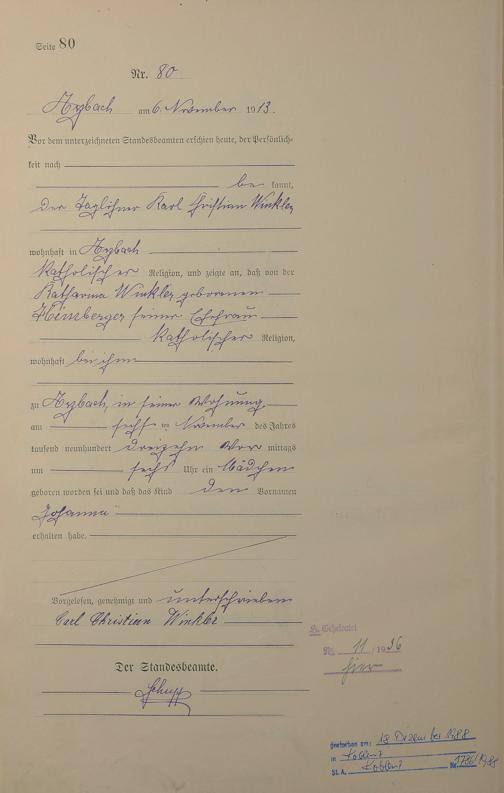 Seite 80
Nr. 80
Arzbach am 6. November 1913.
Vor dem unterzeichneten Standesbeamten erschien heute, der Persönlich-
keit nach
be kannt,
der Taglöhner Karl Christian Winkler
wohnhaft in Arzbach
katholischer Religion, und zeigte an, daß von der
Katharina Winkler geborenen
Hemberger seiner Ehefrau
katholischer Religion,
wohnhaft bei ihm
zu Arzbach, in seiner Wohnung
am sechsten November des Jahres
tausend neunhundert dreizehn vor mittags
um sechs Uhr ein Mädchen
geboren worden sei und daß das Kind den Vornamen
Johanna
erhalten habe.
Vorgelesen, genehmigt und unterschrieben
Carl Christian Winkler
Der Standesbeamte.
Nr. 11 / 1936
hier
gestorben am: 12 Dezember 1988
in Koblenz
St. A. Koblenz Nr. 1786/1988